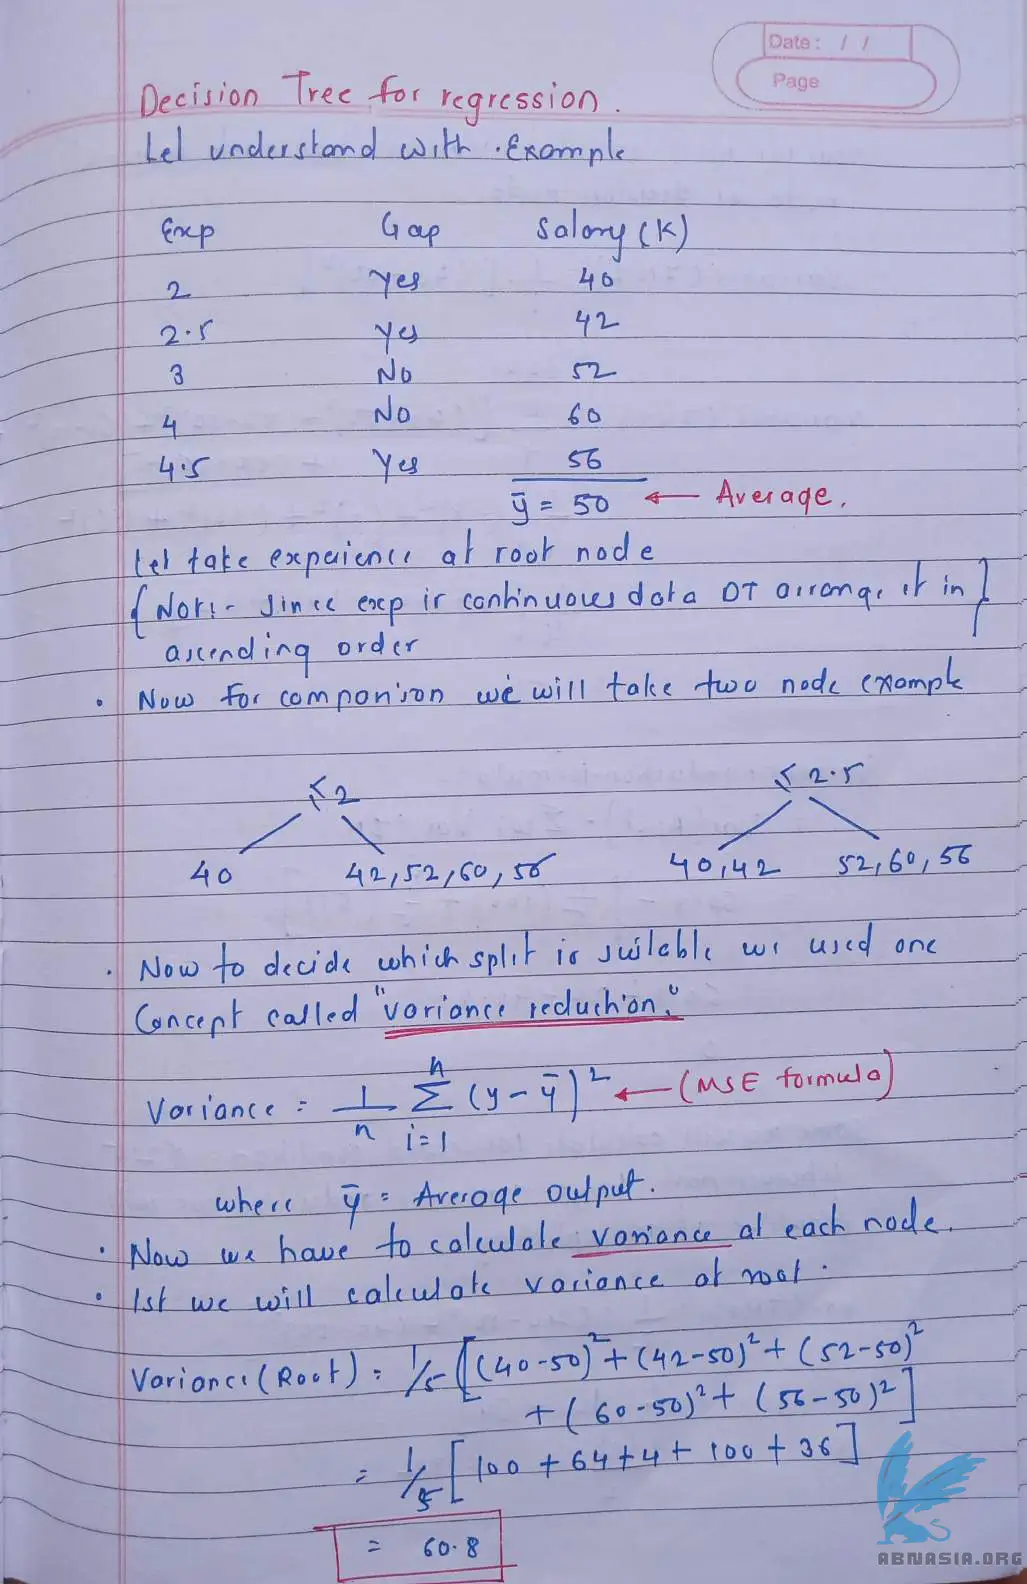 Date: / /
Page
Decision Tree for regression.
Let understand with Example
Exp Gap Salary (K)
2 Yes 40
2.5 Yes 42
3 No 52
4 No 60
4.5 Yes 56
ȳ = 50 ← Average.
Let take experience at root node
{ Note:- Since exp is continuous data DT arrange it in }
ascending order
• Now for comparison we will take two node example
≤ 2 ≤ 2.5
40 42, 52, 60, 56 40, 42 52, 60, 56
• Now to decide which split is suitable we used one
Concept called "variance reduction."
Variance = 1/n n Σ i=1 (y - ȳ)² ← (MSE formula)
where ȳ = Average output.
• Now we have to calculate variance at each node.
• 1st we will calculate variance at root.
Variance (Root) = 1/5 [(40-50)² + (42-50)² + (52-50)²
+ (60-50)² + (56-50)²]
= 1/5 [100 + 64 + 4 + 100 + 36]
= 60.8
ABNASIA.ORG